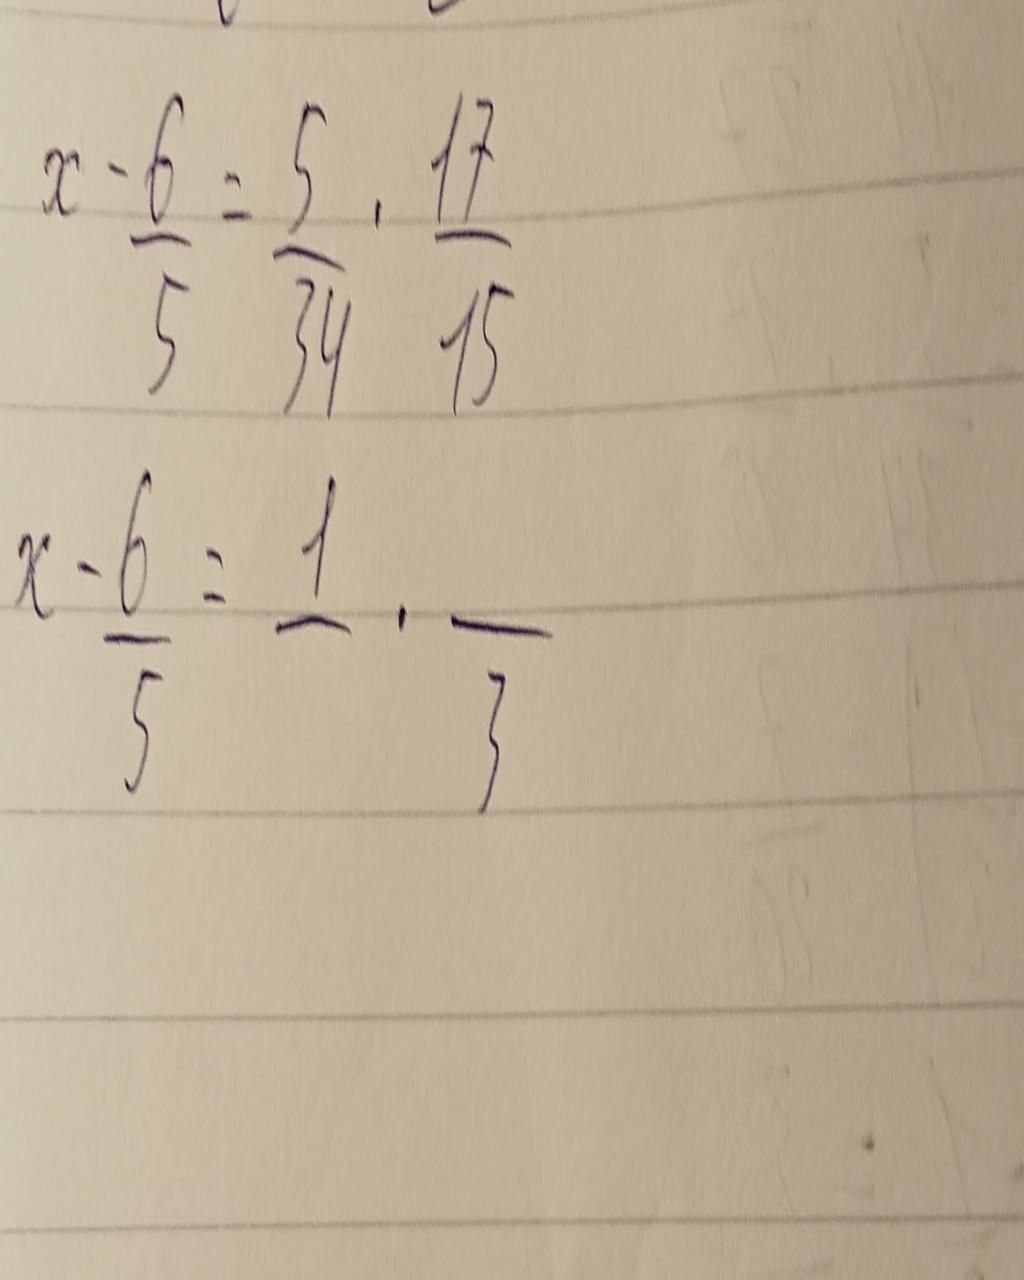 x - 6/5 = 5/34 · 17/15
x - 6/5 = 1/ · /3